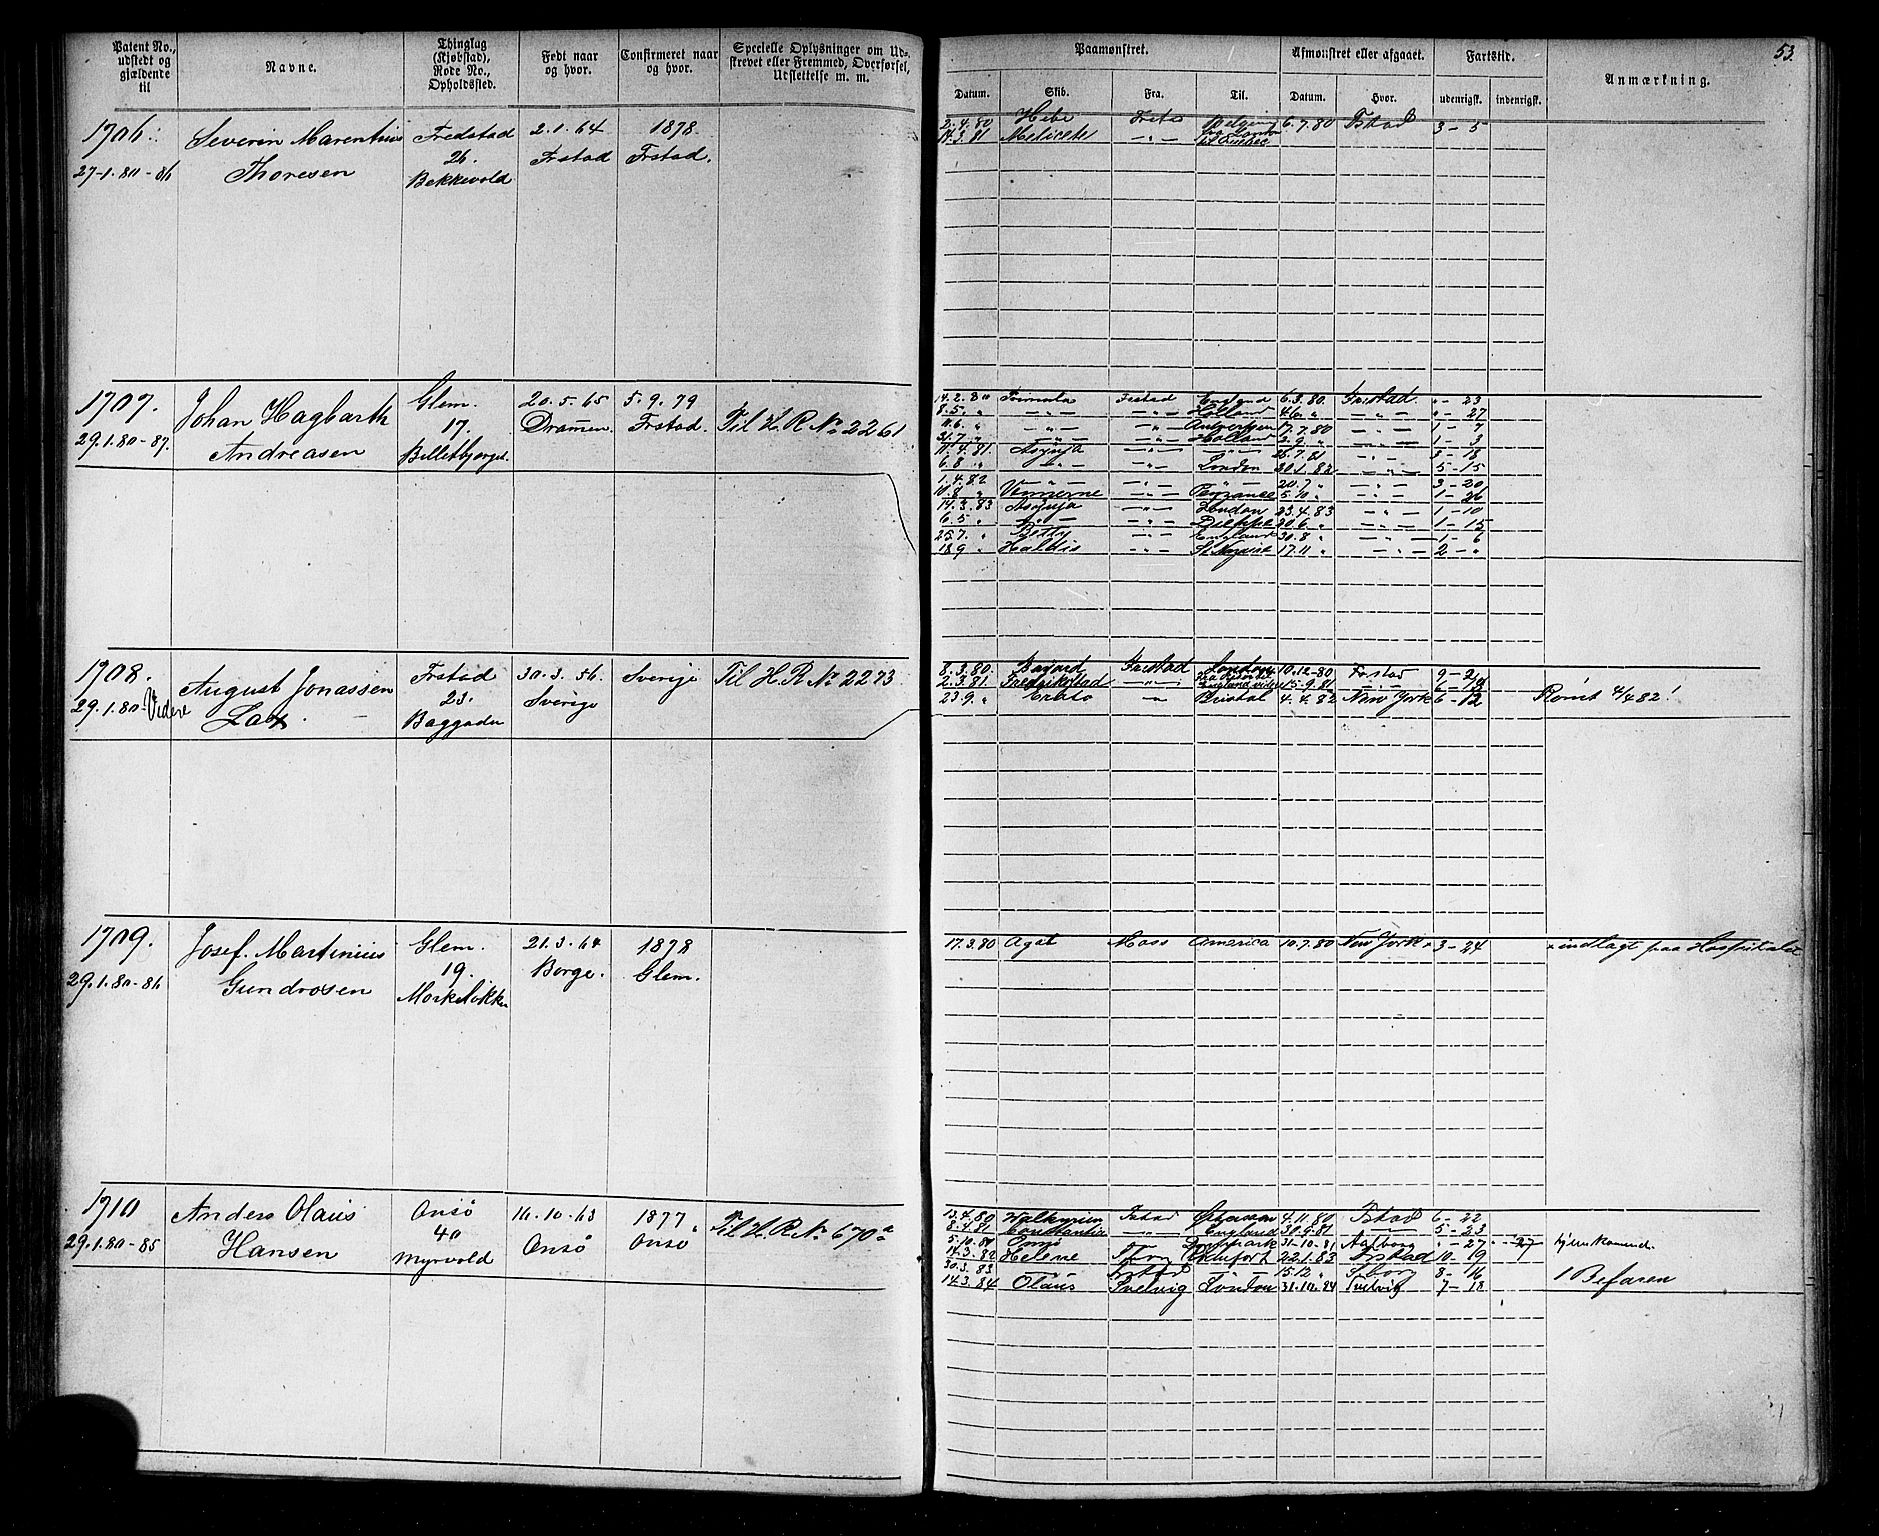 53.
Patent No., udstedt og gjældende til
Navne.
Thinglag (Kjøbstad), Rode No., Opholdssted.
Født naar og hvor.
Confirmeret naar og hvor.
Specielle Oplysninger om Udskrevet eller Fremmed, Overførsel, Udslettelse m. m.
Paamønstret.
Afmønstret eller afgaaet.
Fartstid.
Anmærkning.
Datum. Skib. Fra. Til. Datum. Hvor. udenrigsk. indenrigsk.
1706. Severin Marentius Fredstad 2.1.64 1878.
27-1.80-86 Thoresen 26. Frstad Frstad.
Bekkevold
2.4.80 Hebe 6.7.80 Fstad 3-5
14.3.81
1707. Johan Hagbarth Glem. 20.5.65 5.9.79 Til H.R.No 2261
29.1.80-87. Andreasen 17. Dramen. Frstad.
14.2.80 Frestad England 6.3.80 Frestad „-23
8.5. „ -„- -„- Holland 4.6 „ -„- „-27
11.6. „ -„- -„- Antverpen 17.7.80 -„- 1-7
31.7. „ -„- -„- Holland 3.9. „ -„- 1-3
11.4.81. -„- 26.7.81 -„- 3-18
6.8. „ -„- -„- London 30.1.82 -„- 5-15
1.4.82 -„- -„- -„- 20.7 „ -„- 3-20
10.8 „ -„- 5.10 „ -„- 1-26
14.3.83 -„- London 23.4.83 -„- 1-10
6.5 „ -„- -„- Dieppe 20.6 „ -„- 1-15
25.7. „ Betty -„- England 30.8 „ -„- 1-6
18.9 „ Haldis -„- 17.11 „ -„- 2-„
1708. August Jonassen Frstad 30.3.56 Sverige Til H.R No 2273
29.1.80- Videre Lax 23. Sverige
Baggaden
8.3.80. Bayard Frestad. London 10.12-80 Frstad 9-2
2.3.81 Fredrikstad -„- 15.9.81 6-12
23.9. „ -„- Bristol 4.4.82 New York 6-12 Rømt 4/4 82!
1709. Josef. Martinius Glem. 21.3.64 1878
29.1.80-86 Gundrosen 19. Borge. Glem.
17.3.80 Agat Moss America 10.7.80 New York 3-24 indlagt paa Hospitalet
1710 Anders Olaus Onsø 16.10.63 1877. Til H.R.No 670a
29.1.80-85 Hansen 40 Onsø Onsø
Myrvold
13.4.80 Fstad 4.11.80 Fstad 6-22
8.4.81 Constantia -„- England 30.9.81 5-23
5.10.81 Danmark 31.10.81 Aalborg „-27 „-27
14.3.82 Helene 22.1.83 Frstad 10-19
30.3.83 Frstad 15.12 „ 8-16
14.3.84 Olaus Svelvig London 31.10.84 Svelvig 7-18 1 Befaren